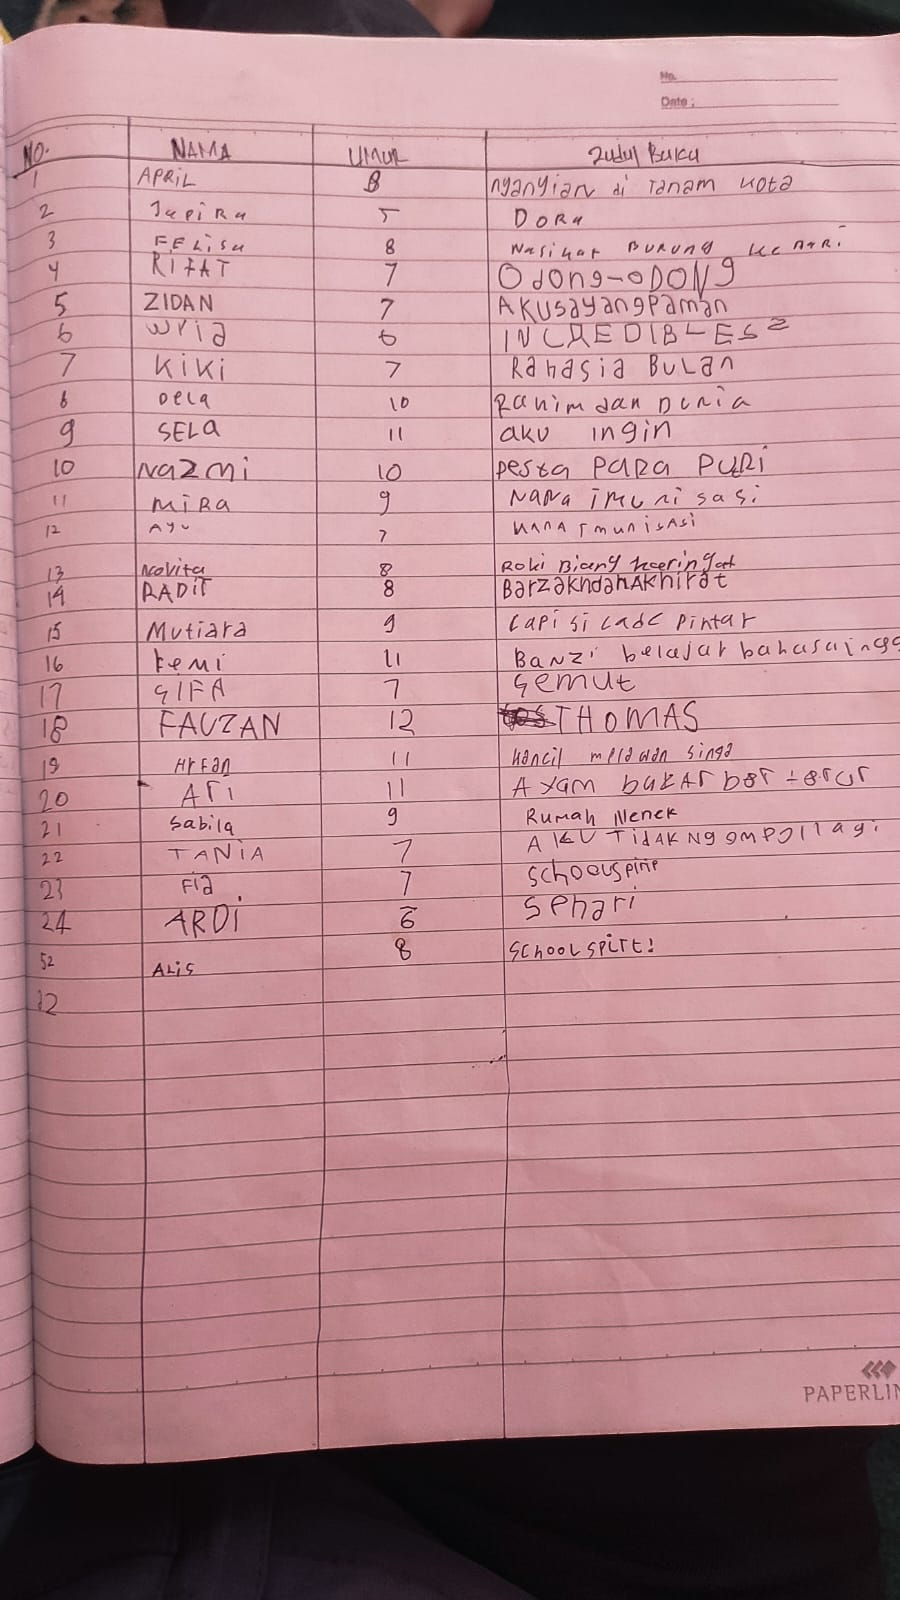 No.
Date :
NO. NAMA UMUR Judul Buku
1 APRIL 8 nyanyian di Tanam kota
2 Japira 5 DORa
3 FELisa 8 Nasihat BURUNG KeNARi
4 RIFAT 7 Odong-ODONG
5 ZIDAN 7 AKUsayangPaman
6 wria 6 INCREDIBLES 2
7 KiKi 7 Rahasia BULan
8 Dela 10 Ranim dan Dunia
9 SELa 11 aku ingin
10 Nazmi 10 pesta PARA PURi
11 MiRa 9 NaNa imunisasi
12 AYU 7 NANA imunisasi
13 Novita 8 Roki Biang keringat
14 RADIT 8 BarzakhdanAKhirat
15 Mutiara 9 Capi si cade Pintar
16 Femi 11 Banzi belajar bahasaingg
17 GIFA 7 Semut
18 FAUZAN 12 THOMAS
19 Arfan 11 kancil melawan singa
20 ARI 11 AYam bakar ber-terur
21 Sabila 9 Rumah Nenek
22 TANiA 7 AKU TidAK NgompolLagi
23 Fia 7 Schoolspirit
24 ARDi 6 Sehari
52 ALiS 8 SchooLSpirt!
12
PAPERLIN